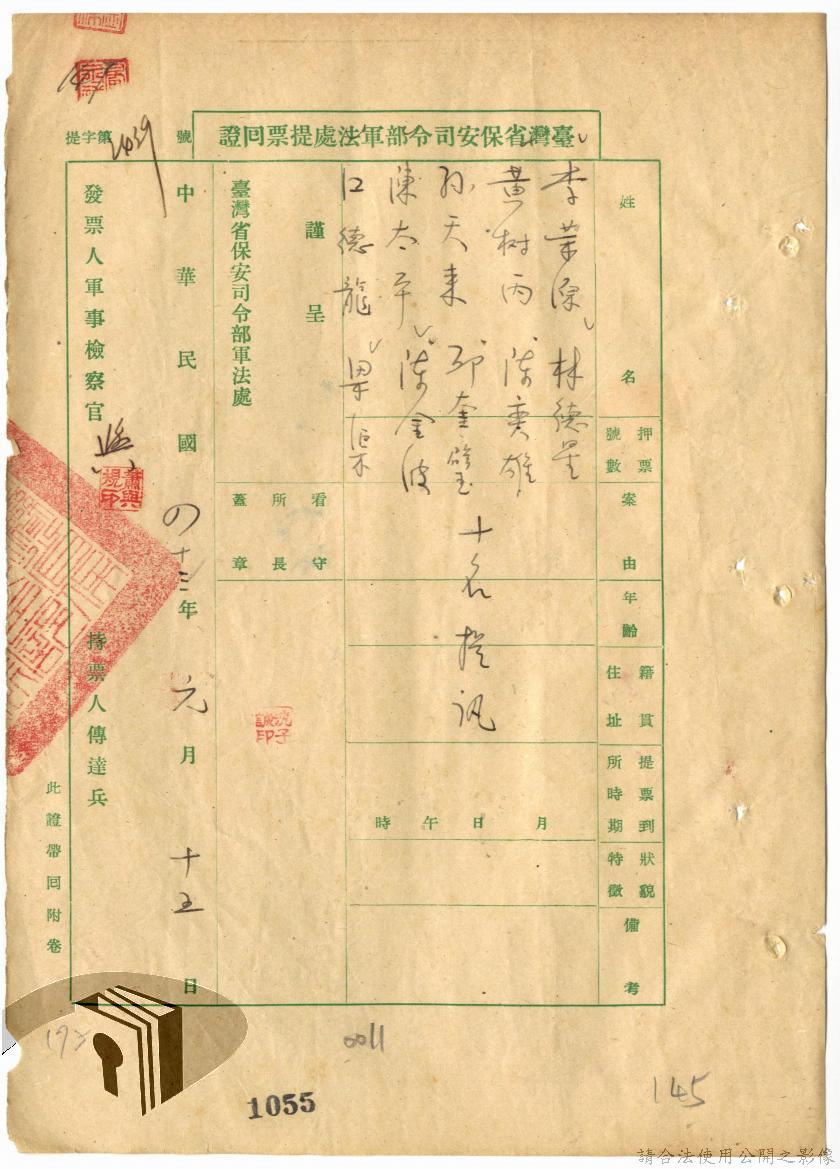 臺灣省保安司令部軍法處提票回證
提字第2439號
姓名
押票號數
案由
年齡
籍貫住址
提票到所時期
狀貌特徵
備考
李榮源 林德星
黃树丙 陈奕雄
孙天来 邱奎璧
陳太平 陈金波
江德龍 梁渠
十名提讯
月 日 午 時
謹呈
臺灣省保安司令部軍法處
看守所長蓋章
中華民國四十三年元月十五日
發票人軍事檢察官
蕭與規印
持票人傳達兵
此證帶回附卷
0011
1055
145
請合法使用公開之影像